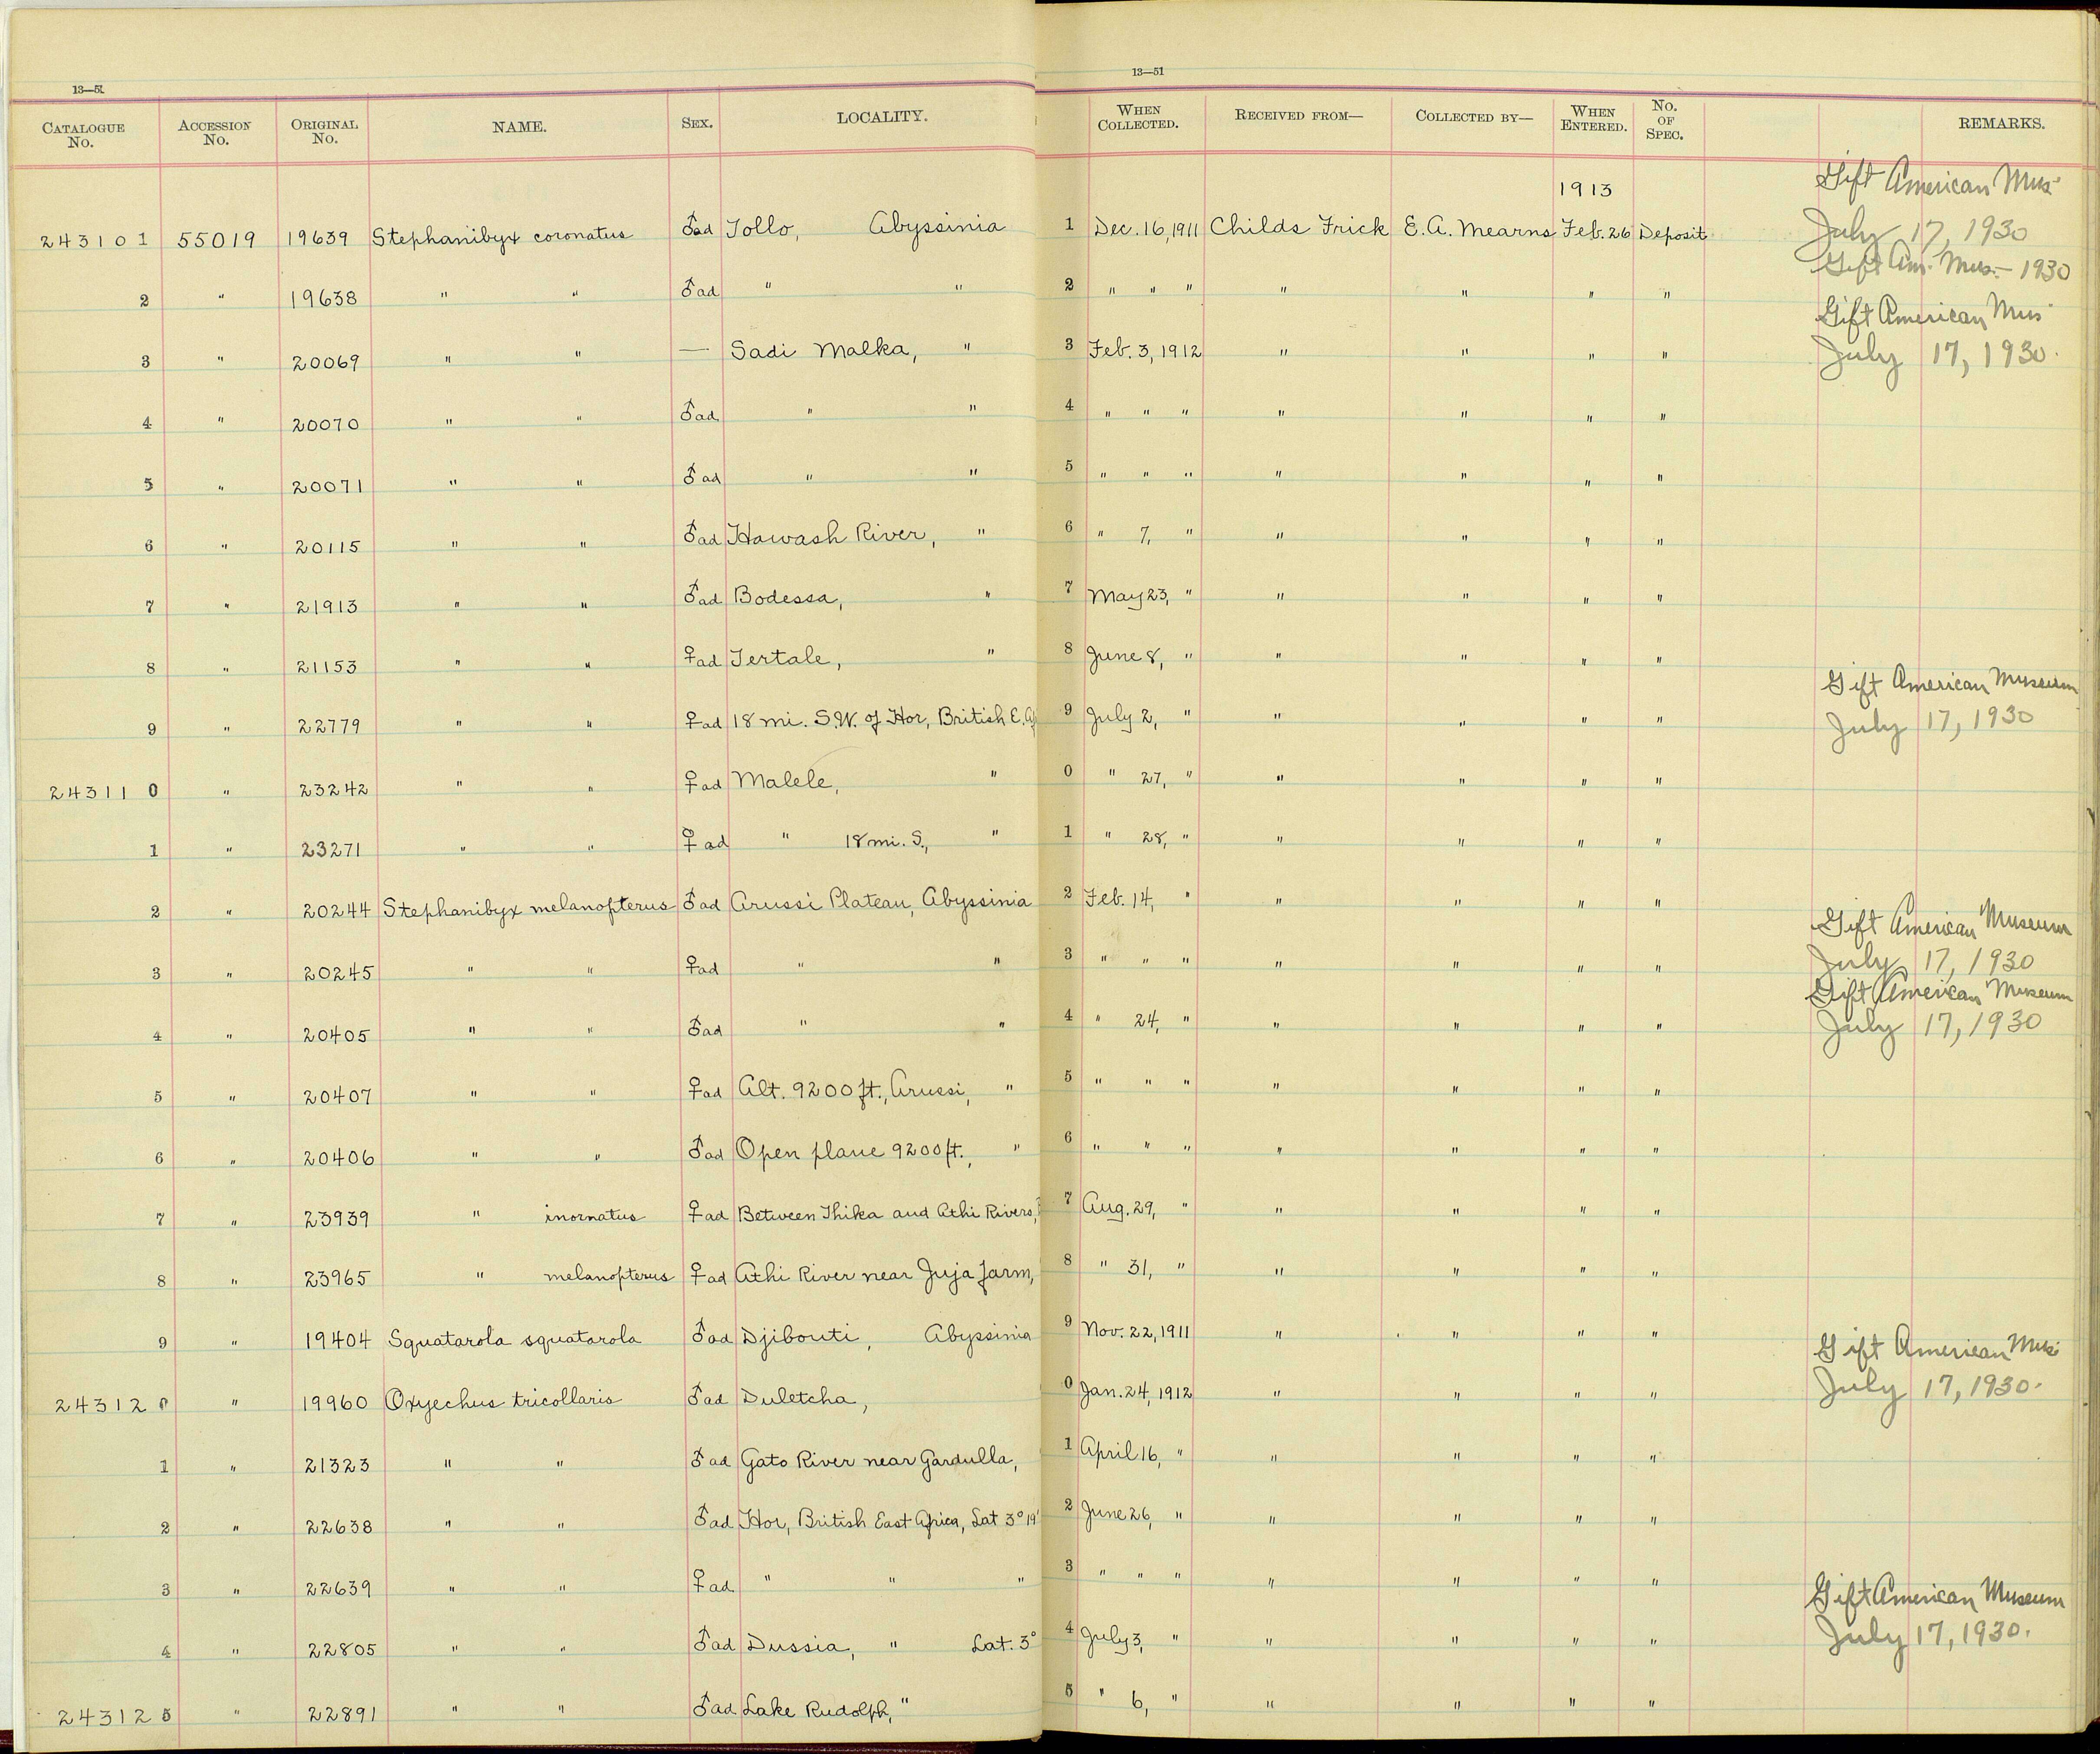 13—51
13—51
CATALOGUE No. ACCESSION No. ORIGINAL No. NAME. SEX. LOCALITY. WHEN COLLECTED. RECEIVED FROM— COLLECTED BY— WHEN ENTERED. No. OF SPEC. REMARKS.
1913 Gift American Mus.
243101 55019 19639 Stephanibyx coronatus ♂ad Tollo, Abyssinia 1 Dec. 16, 1911 Childs Frick E. A. Mearns Feb. 26 Deposit July 17, 1930
2 " 19638 " " ♂ad " " 2 " " " " " " " Gift Am. Mus. – 1930
Gift American Mus
3 " 20069 " " — Sadi Malka, " 3 Feb. 3, 1912 " " " " July 17, 1930.
4 " 20070 " " ♂ad " " 4 " " " " " " "
5 " 20071 " " ♂ad " " 5 " " " " " " "
6 " 20115 " " ♂ad Hawash River, " 6 " 7, " " " " "
7 " 21913 " " ♂ad Bodessa, " 7 May 23, " " " " "
8 " 21153 " " ♀ad Tertale, " 8 June 8, " " " " "
Gift American Museum
9 " 22779 " " ♀ad 18 mi. S.W. of Hor, British E. Af 9 July 2, " " " " " July 17, 1930
243110 " 23242 " " ♀ad Malele, " 0 " 27, " " " " "
1 " 23271 " " ♀ad " 18 mi. S., " 1 " 28, " " " " "
2 " 20244 Stephanibyx melanopterus ♂ad Arussi Plateau, Abyssinia 2 Feb. 14, " " " " "
Gift American Museum
3 " 20245 " " ♀ad " " 3 " " " " " " " July 17, 1930
Gift American Museum
4 " 20405 " " ♂ad " " 4 " 24, " " " " " July 17, 1930
5 " 20407 " " ♀ad Alt. 9200 ft., Arussi, " 5 " " " " " " "
6 " 20406 " " ♂ad Open plane 9200 ft., " 6 " " " " " " "
7 " 23939 " inornatus ♀ad Between Thika and Athi Rivers, 7 Aug. 29, " " " " "
8 " 23965 " melanopterus ♀ad Athi River near Juja farm, 8 " 31, " " " " "
9 " 19404 Squatarola squatarola ♂ad Djibouti, Abyssinia 9 Nov. 22, 1911 " " " " Gift American Mus.
243120 " 19960 Oxyechus tricollaris ♂ad Duletcha, 0 Jan. 24, 1912 " " " " July 17, 1930.
1 " 21323 " " ♂ad Gato River near Gardulla, 1 April 16, " " " " "
2 " 22638 " " ♂ad Hor, British East Africa, Lat 3° 19' 2 June 26, " " " " "
3 " 22639 " " ♀ad " " " 3 " " " " " " " Gift American Museum
4 " 22805 " " ♂ad Dussia, " Lat. 3° 4 July 3, " " " " " July 17, 1930.
243125 " 22891 " " ♂ad Lake Rudolph, " 5 " 6, " " " " "